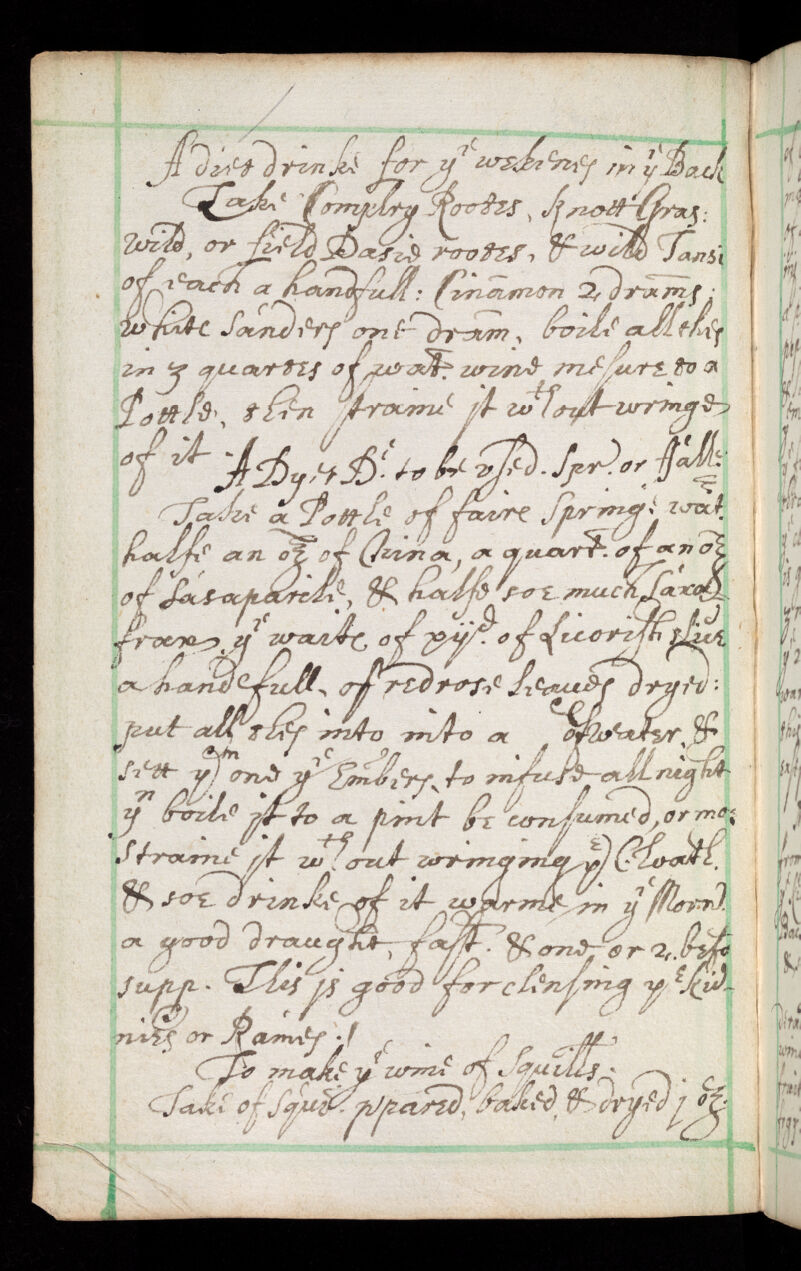 A diet drinke for yᵉ wekenes in yᵉ Back
Take Comphry Rootes, knott Gras:
wild, or field Dasie rootes, & wild Tansi
of each a handfull: Cinam̄on 2 dram̄s:
white Sanders one dram̄, boile all thes
in 3 quartes of wat: wine mesure to a
Pottle, then straine jt wᵗʰout wringe
of it.
A Dyet Dʳ: to be vsed. Spr: or Fall:
Take a Pottle of faire Spring: wat:
halfe an oz of China, a quart: of an oz
of Sasaparile, & halfe soe much Saxa
frax, yᵉ waite of xijᵈ. of Licorish slice
a handefull, of redrose leaues dryed:
put all thes into into a of weater, &
sett yᵐ one yᵉ Embers, to infuse all night
yⁿ boile jt to a pint be consumed, or mo:
straine jt wᵗʰout wringing yᵉ Cloath.
& soe drinke of it warme in yᵉ Morn:
a good draught, fast: & one or 2, befo
supp. This is good for clensing yᵉ Kid-
nies or Raines:/
To make yᵉ wine of Squills.
Take of Sque: ppared, baked, & dryed j oz: